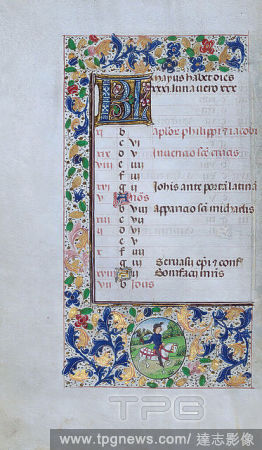 KL mayus habet dies
xxxi luna vero xxx
xi b Aplor philippi et iacobi
c vi
xix d v Inventio sce crucis
viii e iiii
f iii
xvi g ii Johis ante porta latina
v A nos
b viii Apparicio sci michaelis
xiii c vii
ii d vi
e v
x f iiii
g iii Servasii epi et conf
xviii A ii Bonifacii mris
vii b Idus
TPG
www.tpgnews.com/ 達志影像